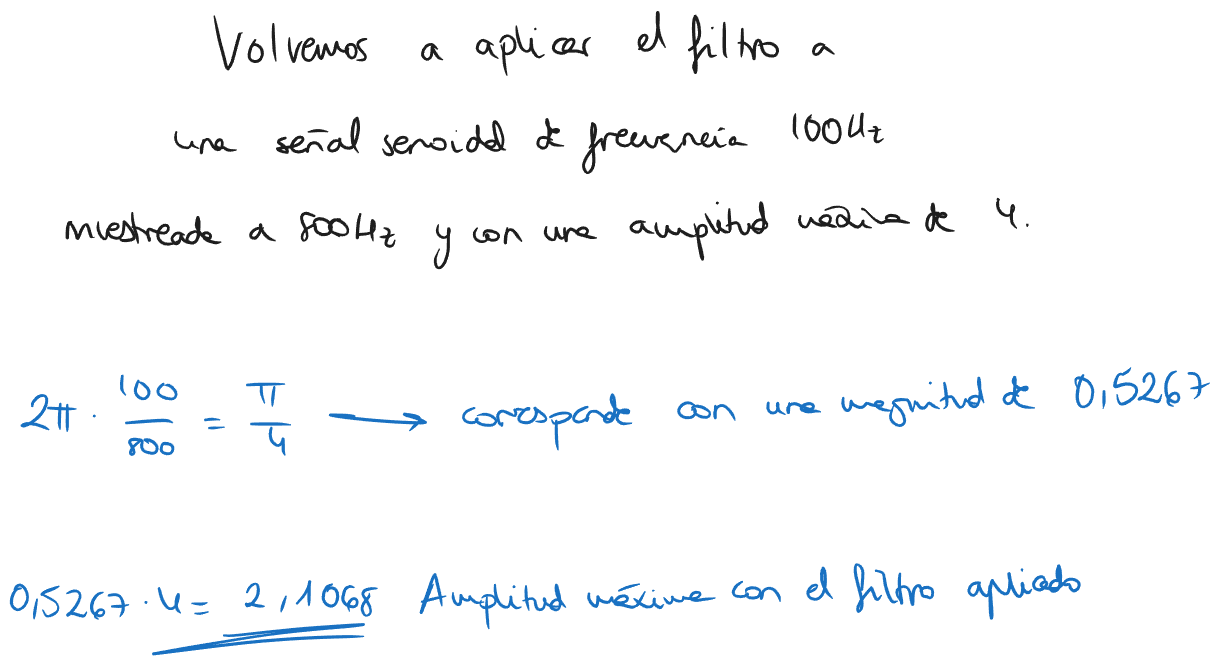 Volvemos a aplicar el filtro a
una señal senoidal de frecuencia 100Hz
muestreada a 800Hz y con una amplitud máxima de 4.
2π · 100/800 = π/4 → corresponde con una magnitud de 0,5267
0,5267 · 4 = 2,1068 Amplitud máxima con el filtro aplicado